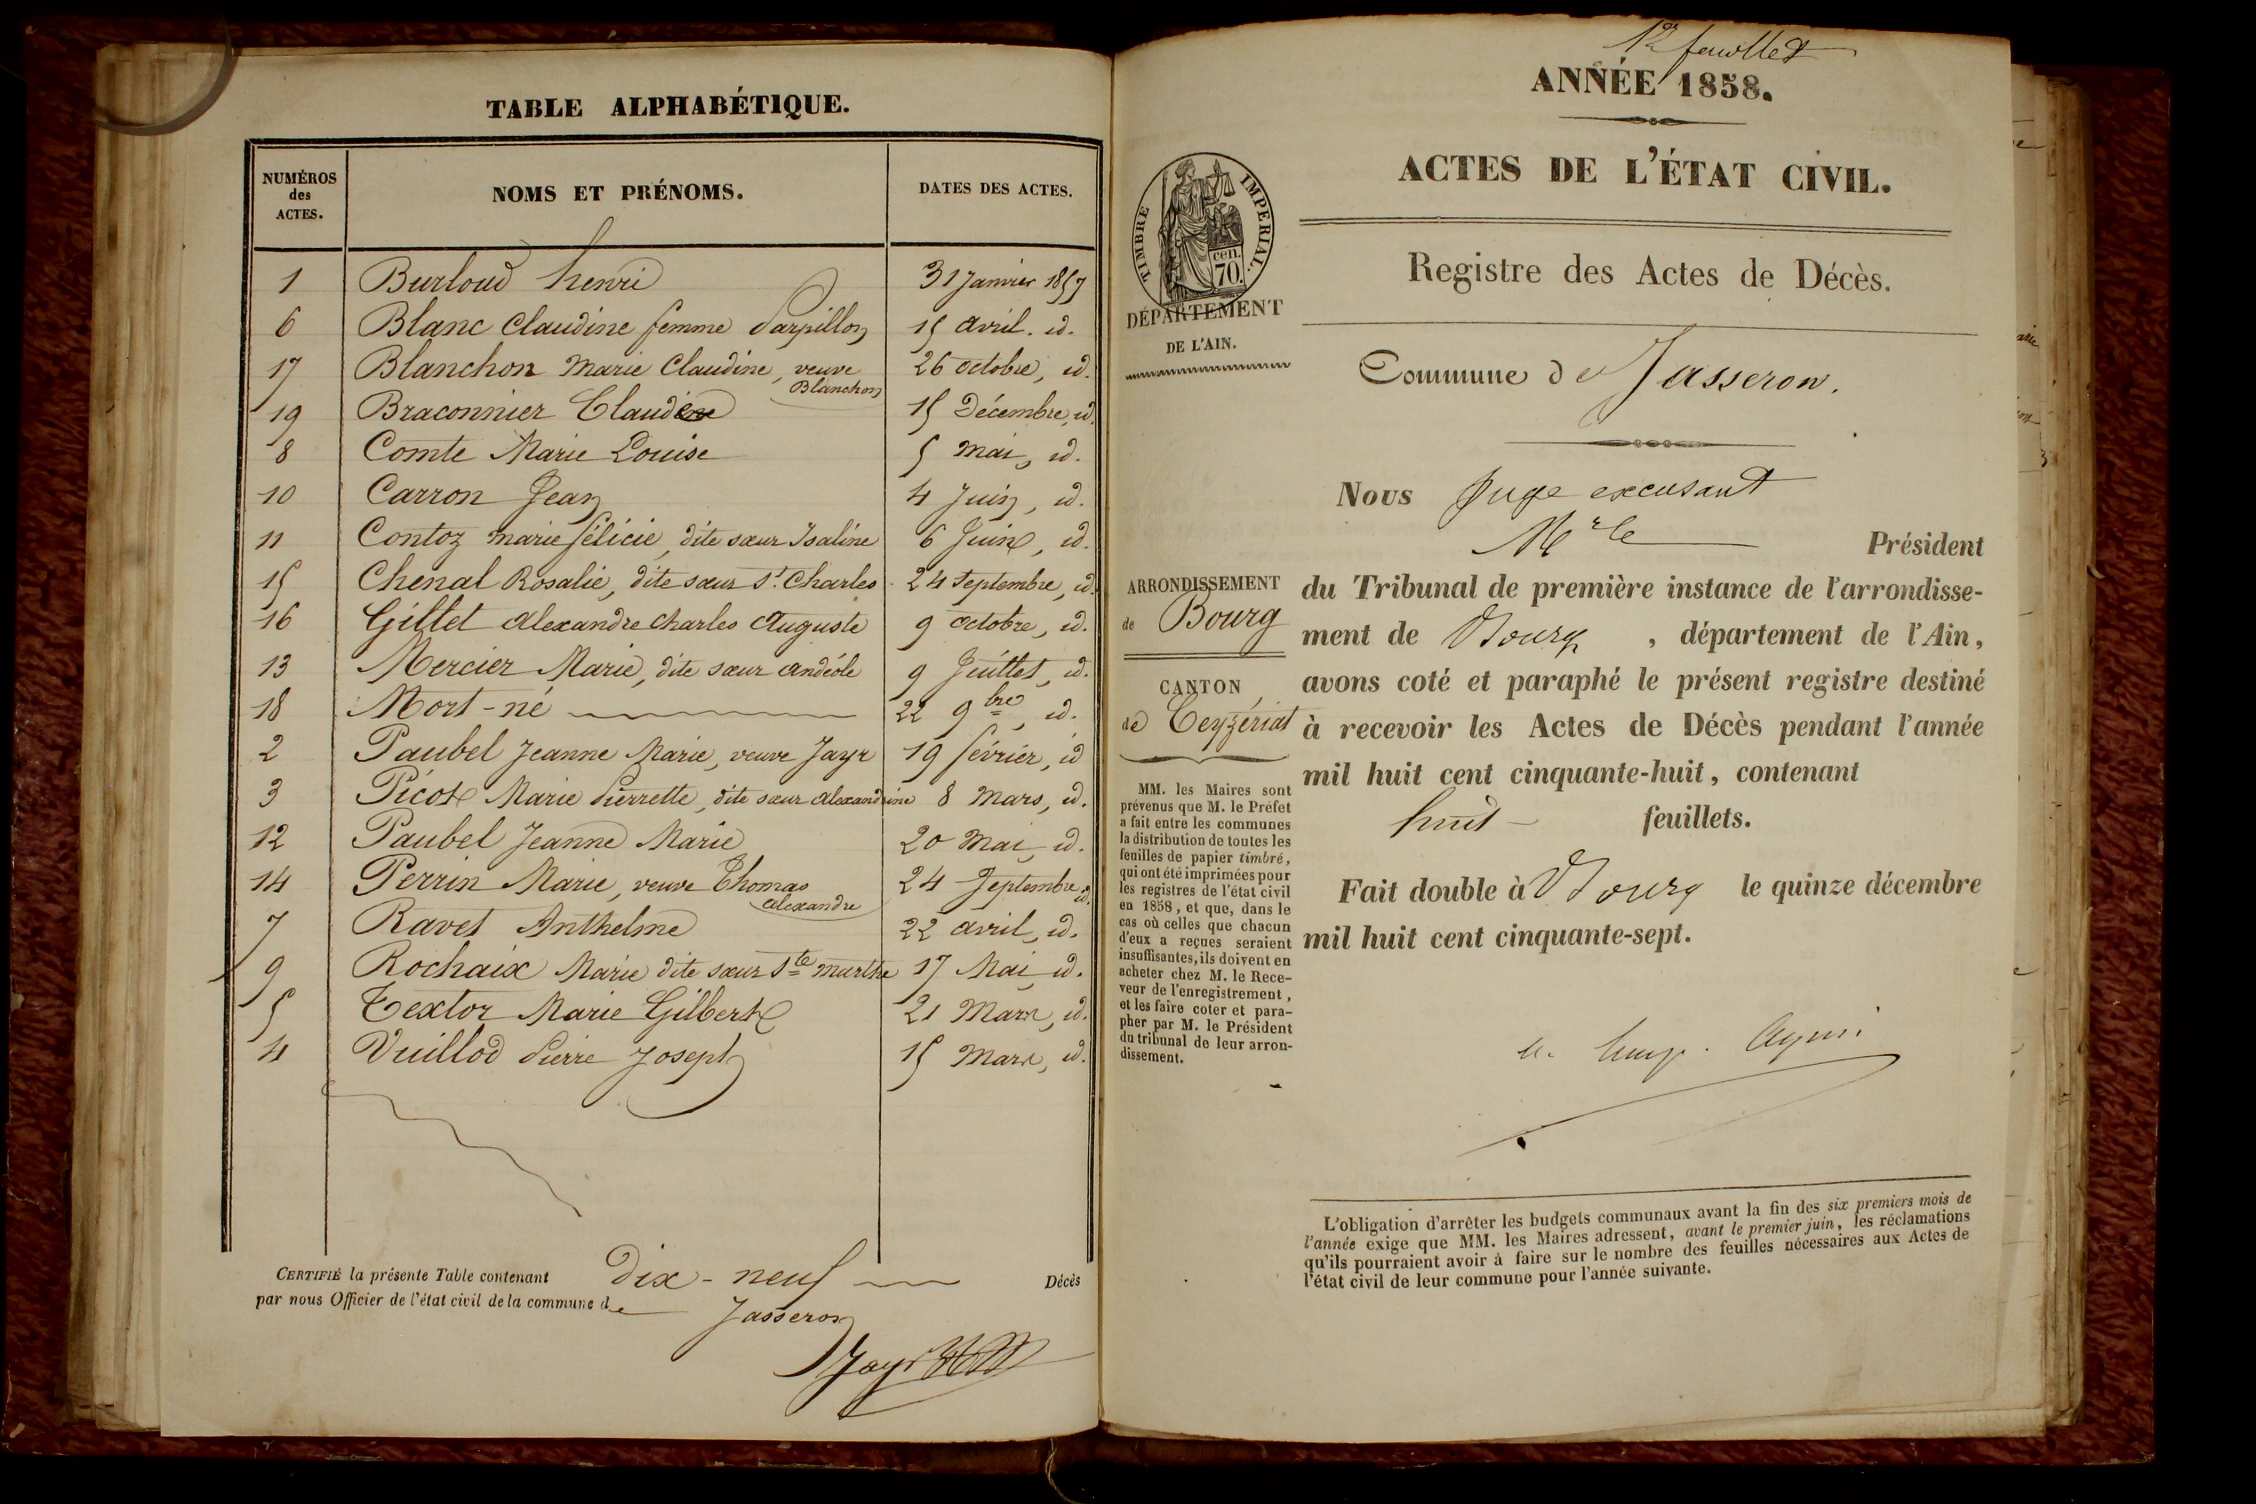 TABLE ALPHABÉTIQUE.
NUMÉROS
des
ACTES.
NOMS ET PRÉNOMS.
DATES DES ACTES.
1 Burloud henri 31 Janvier 1857
6 Blanc Claudine femme Parpillon 15 avril. id.
17 Blanchon Marie Claudine, veuve Blanchon 26 octobre, id.
19 Braconnier Claudine 15 Décembre, id.
8 Comte Marie Louise 5 mai, id.
10 Carron Jean 4 Juin, id.
11 Contoz marie félicie, dite sœur Isaline 6 Juin, id.
15 Chenal Rosalie, dite sœur St. Charles 24 septembre, id.
16 Gillet alexandre charles auguste 9 octobre, id.
13 Mercier Marie, dite sœur andéole 9 Juillet, id.
18 Mort-né 22 9bre, id.
2 Paubel Jeanne Marie, veuve Jayr 19 février, id
3 Picot Marie Pierrette, dite sœur alexandrine 8 Mars, id.
12 Paubel Jeanne Marie 20 Mai, id.
14 Perrin Marie, veuve Thomas alexandre 24 Septembre id.
7 Ravet Anthelme 22 avril, id.
9 Rochaix Marie dite sœur Ste marthe 17 Mai, id.
5 Textor Marie Gilberte 21 Mars, id.
4 Vuillod Pierre Joseph 15 Mars, id.
CERTIFIÉ la présente Table contenant dix-neuf Décès
par nous Officier de l'état civil de la commune de Jasseron
Jayr
12 feuillets
ANNÉE 1858.
ACTES DE L'ÉTAT CIVIL.
Registre des Actes de Décès.
Commune de Jasseron.
TIMBRE IMPERIAL.
cen.
70.
DÉPARTEMENT
DE L'AIN.
ARRONDISSEMENT
de Bourg
CANTON
de Ceyzériat
MM. les Maires sont
prévenus que M. le Préfet
a fait entre les communes
la distribution de toutes les
feuilles de papier timbré,
qui ont été imprimées pour
les registres de l'état civil
en 1858, et que, dans le
cas où celles que chacun
d'eux a reçues seraient
insuffisantes, ils doivent en
acheter chez M. le Rece-
veur de l'enregistrement,
et les faire coter et para-
pher par M. le Président
du tribunal de leur arron-
dissement.
Nous Juge excusant
Mr le Président
du Tribunal de première instance de l'arrondisse-
ment de Bourg, département de l'Ain,
avons coté et paraphé le présent registre destiné
à recevoir les Actes de Décès pendant l'année
mil huit cent cinquante-huit, contenant
huit feuillets.
Fait double à Bourg le quinze décembre
mil huit cent cinquante-sept.
L'obligation d'arrêter les budgets communaux avant la fin des six premiers mois de
l'année exige que MM. les Maires adressent, avant le premier juin, les réclamations
qu'ils pourraient avoir à faire sur le nombre des feuilles nécessaires aux Actes de
l'état civil de leur commune pour l'année suivante.